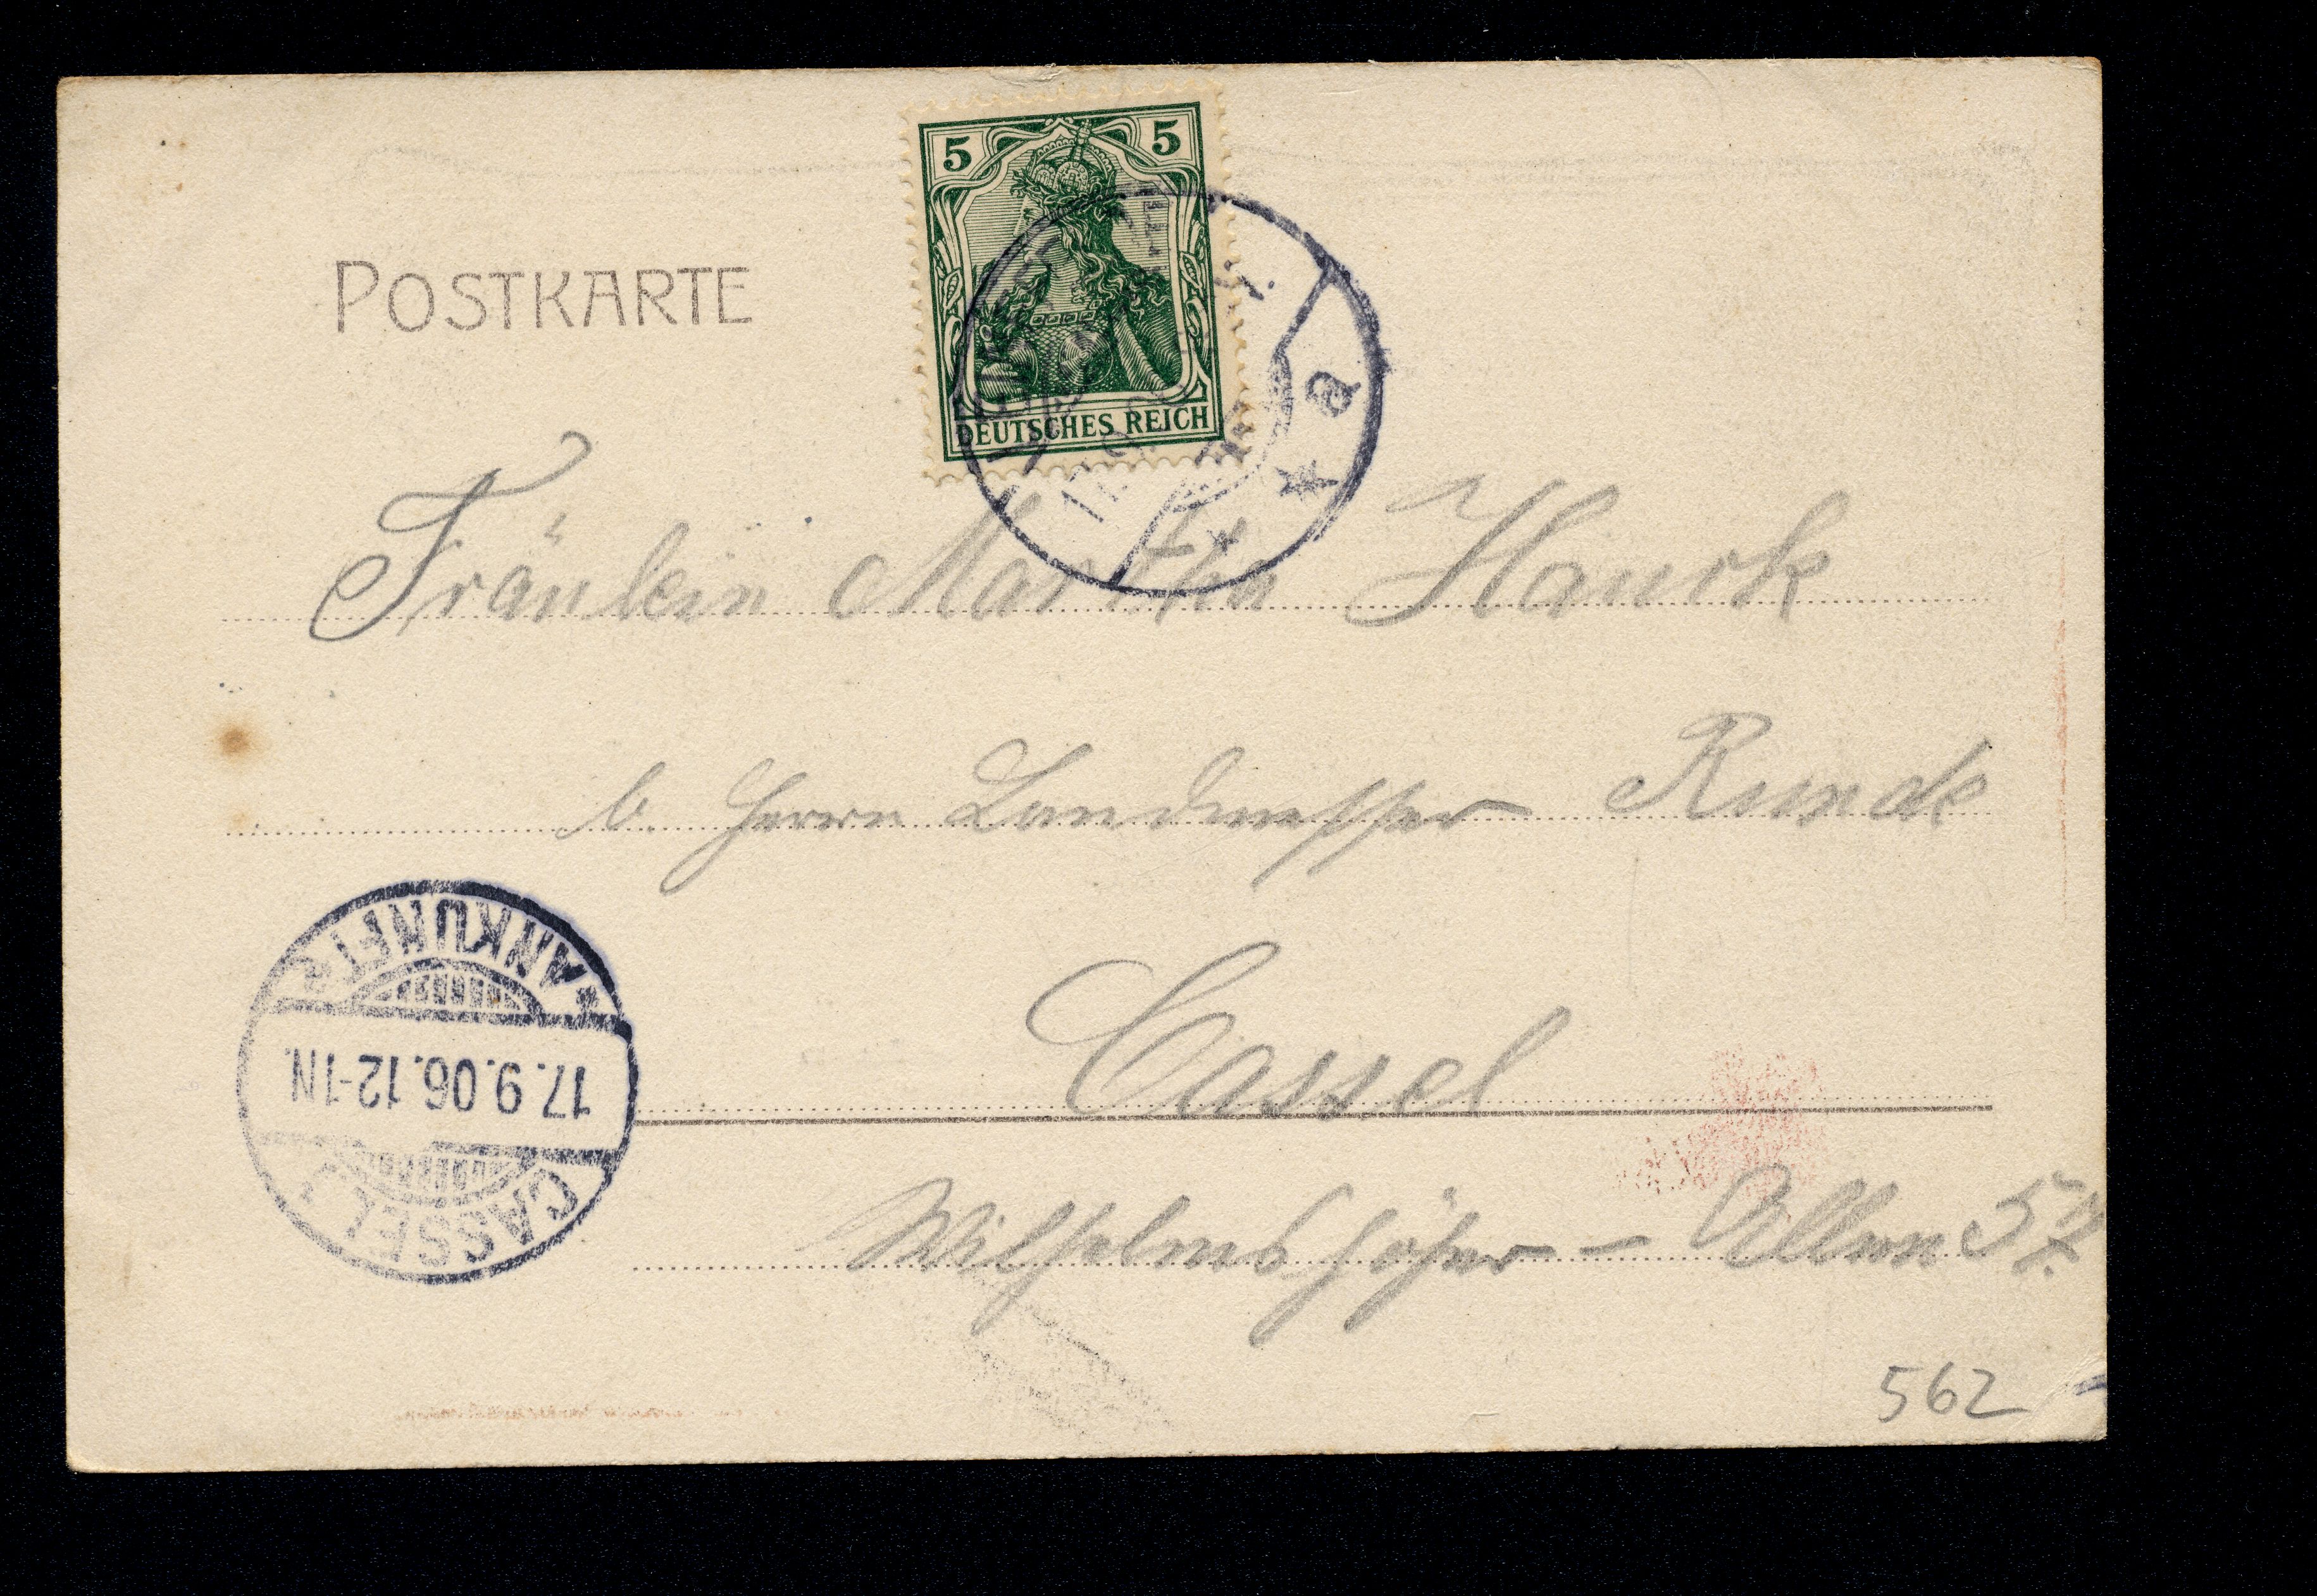 5 5
DEUTSCHES REICH
POSTKARTE
a
Fräulein Martha Hauck
b. Herrn Landmesser Runde
Cassel
Wilhelmshöher – Allee 57.
* ANKUNFT
17.9.06.12-1N.
CASSEL
562